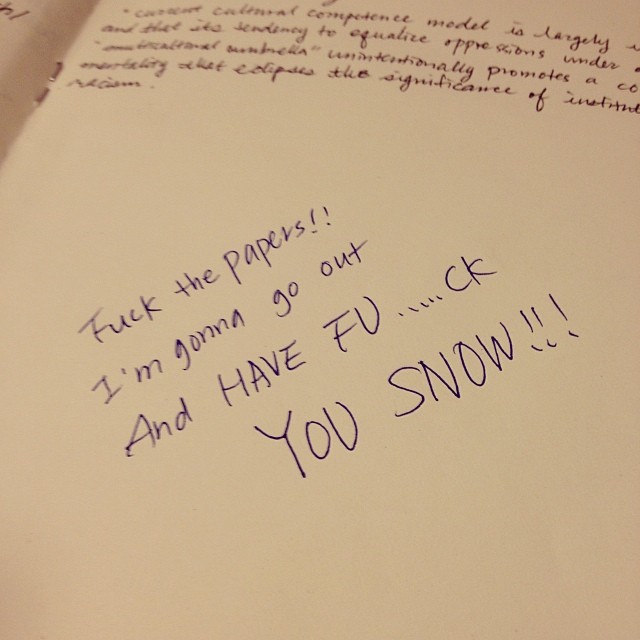 "current cultural competence model is largely
and that its tendency to equalize oppressions under
"multicultural umbrella" unintentionally promotes a co
mentality that eclipses the significance of institut
racism.
Fuck the papers!!
I'm gonna go out
And HAVE FU.....CK
YOU SNOW!!!